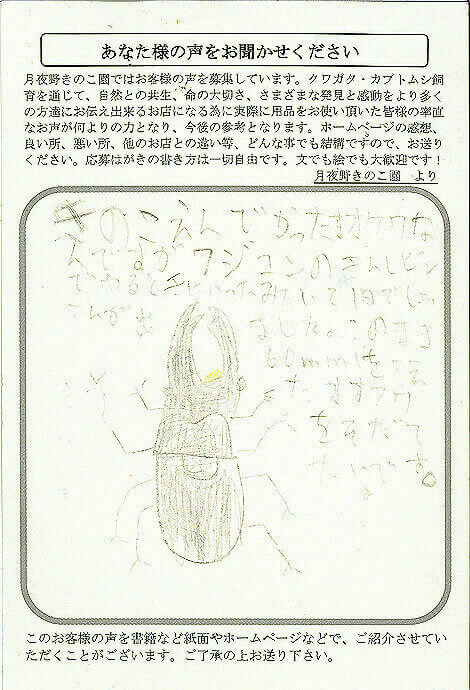 あなた様の声をお聞かせください
月夜野きのこ園ではお客様の声を募集しています。クワガタ・カブトムシ飼
育を通じて、自然との共生、命の大切さ、さまざまな発見と感動をより多く
の方達にお伝え出来るお店になる為に実際に用品をお使い頂いた皆様の率直
なお声が何よりの力となり、今後の参考となります。ホームページの感想、
良い所、悪い所、他のお店との違い等、どんな事でも結構ですので、お送り
ください。応募はがきの書き方は一切自由です。文でも絵でも大歓迎です！
月夜野きのこ園　より
きのこえんでかったオオクワな
んですが フジコンの
でやると
ました。このまま
60mmを
たオオクワ
をそだて
たいです。
このお客様の声を書籍など紙面やホームページなどで、ご紹介させてい
ただくことがございます。ご了承の上お送り下さい。